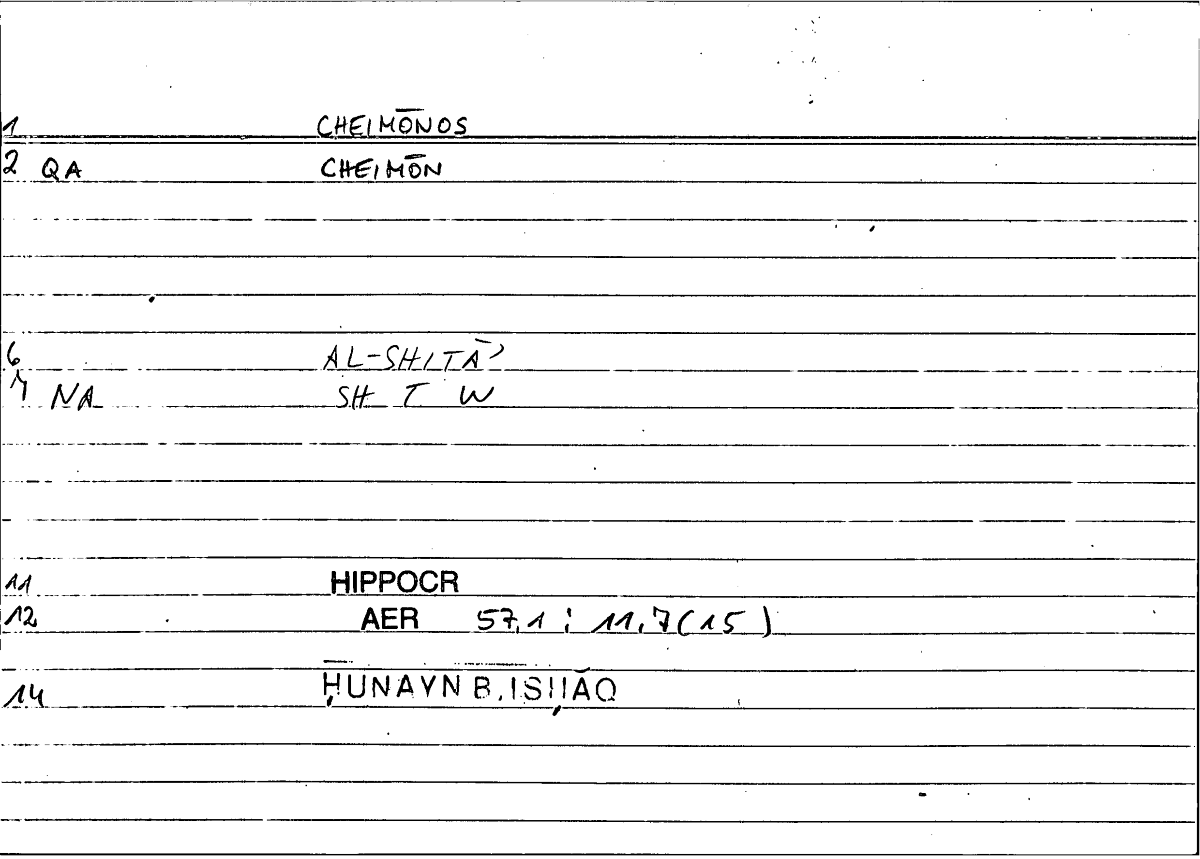 1 CHEIMŌNOS
2 QA CHEIMŌN
6 AL-SHITĀʾ
7 NA SH T W
11 HIPPOCR
12 AER 57,1 ; 11,7(15)
14 ḤUNAYN B. ISḤĀQ